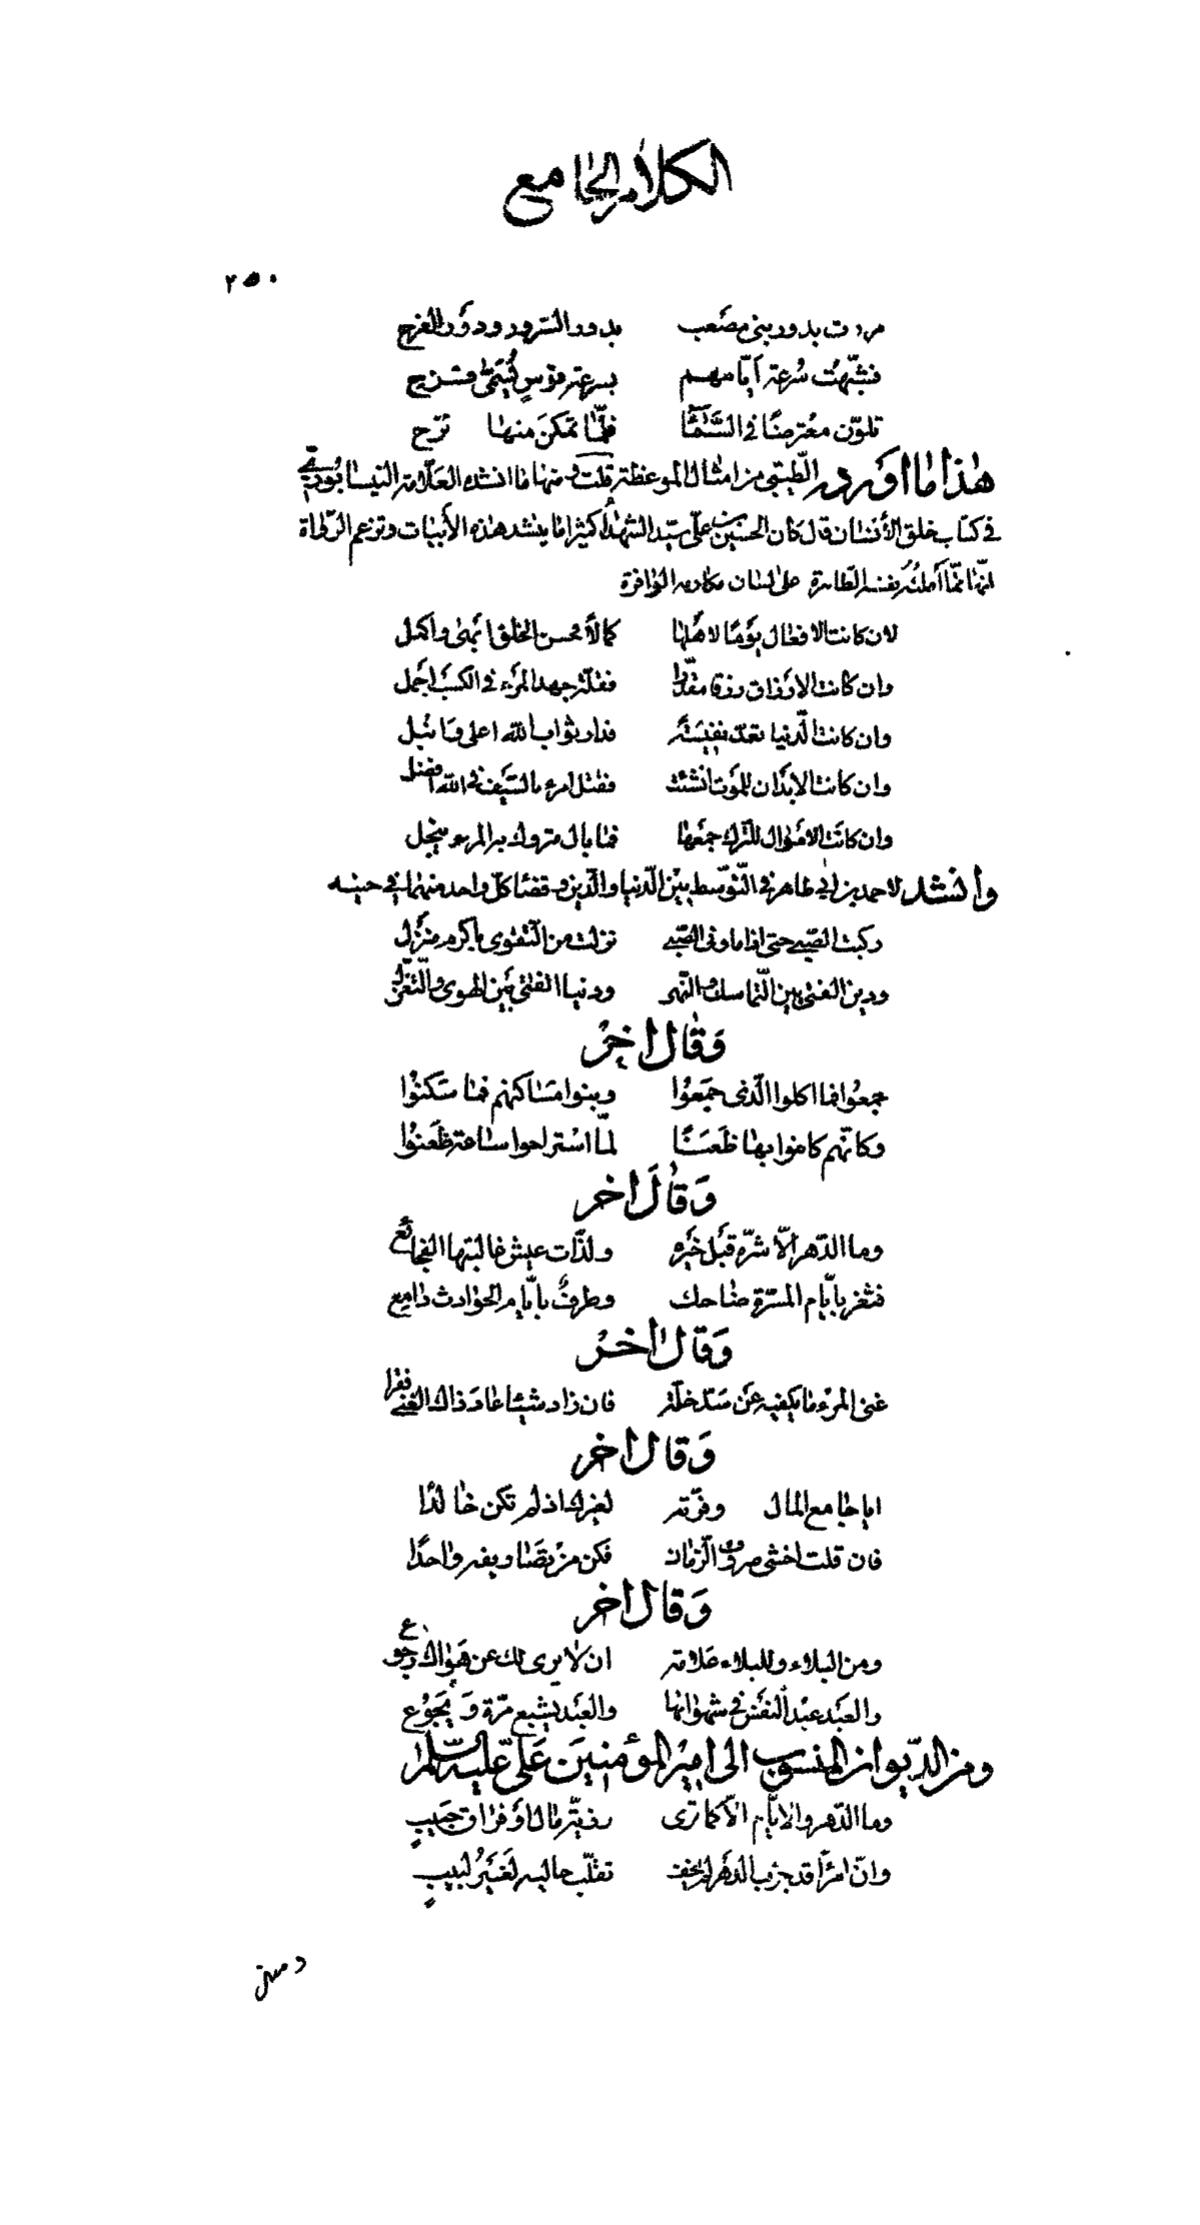 الكلام الجامع
٢٥٠
مررت بدور بنى مصعب بدور السرور ودور الفرج
فشبّهت سرعة أيّامهم بسرعة قوس يسمّى قزح
تلوّن معترضًا في السّماء فلمّا تمكّن منها نزح
هذا ما أورده الطّيبي من امثال الموعظة قلت ومنها ما انشده العلّامة النيسابوري
في كتاب خلق الأنسان قال كان الحسين بن علىّ سيّد الشهداء كثيرا ما ينشد هذه الأبيات وتزعم الرّواة
انّها ممّا أملته نفسه الطّاهرة على لسان مكارمه الوافرة
لان كانت الافعال يومًا لاهلها كمالًا فحسن الخلق ابهى واكمل
وان كانت الارزاق رزقا مقدّرا فقلّة جهد المرء في الكسب اجمل
وان كانت الدّنيا تعدّ نفيسة فدار ثواب الله اعلى وانبل
وان كانت الابدان للموت انشئت فقتل امرء بالسّيف في الله افضل
وان كانت الاموال للترك جمعها فما بال متروك به المرء يبخل
وانشد لاحمد بن ابي طاهر في التّوسّط بين الدّنيا والدّين وقضاء كلّ واحد منهما في حينه
ركبت الصّبى حتى اذا ما ونى الصّبى نزلت من التّقوى باكرم منزل
ودين الفتى بين التّماسك والنّهى ودنيا الفتى بين الهوى والتّغزّل
وَقال اخر
جمعوا فما اكلوا الّذى جمعوا وبنوا مساكنهم فما سكنوا
وكانّهم كانوا بها ظعنًا لمّا استراحوا ساعة ظعنوا
وَقال اخر
وما الدّهر الّا شرّه قبل خيره ولذّات عيش غالبتها الفجائع
فثغر بايّام المسرّة ضاحك وطرفٌ بايّام الحوادث دامع
وَقال اخر
غنى المرء ما يكفيه عن سدّ خلّة فان زاد شيئا عاد ذاك الغنى فقرا
وَقال اخر
ايا جامع المال وفّرته لغيرك اذ لم تكن خالدًا
فان قلت اخشى صروف الزّمان فكن من تصاريفه واحدًا
وَقال اخر
ومن البلاء وللبلاء علامة ان لا يرى لك عن هواك رجوع
والعبد عبد النفس في شهواتها والعبد يشبع مرّة وَيجوع
ومن الدّيوان المنسوب الى امير المؤمنين عَلىّ عليه السّلام
وما الدّهر والايّام الّا كما ترى رزيّة مال او فراق حبيبٍ
وانّ امرأ قد جرّب الدّهر لم يخف تقلّب حاليه لغير لبيبٍ